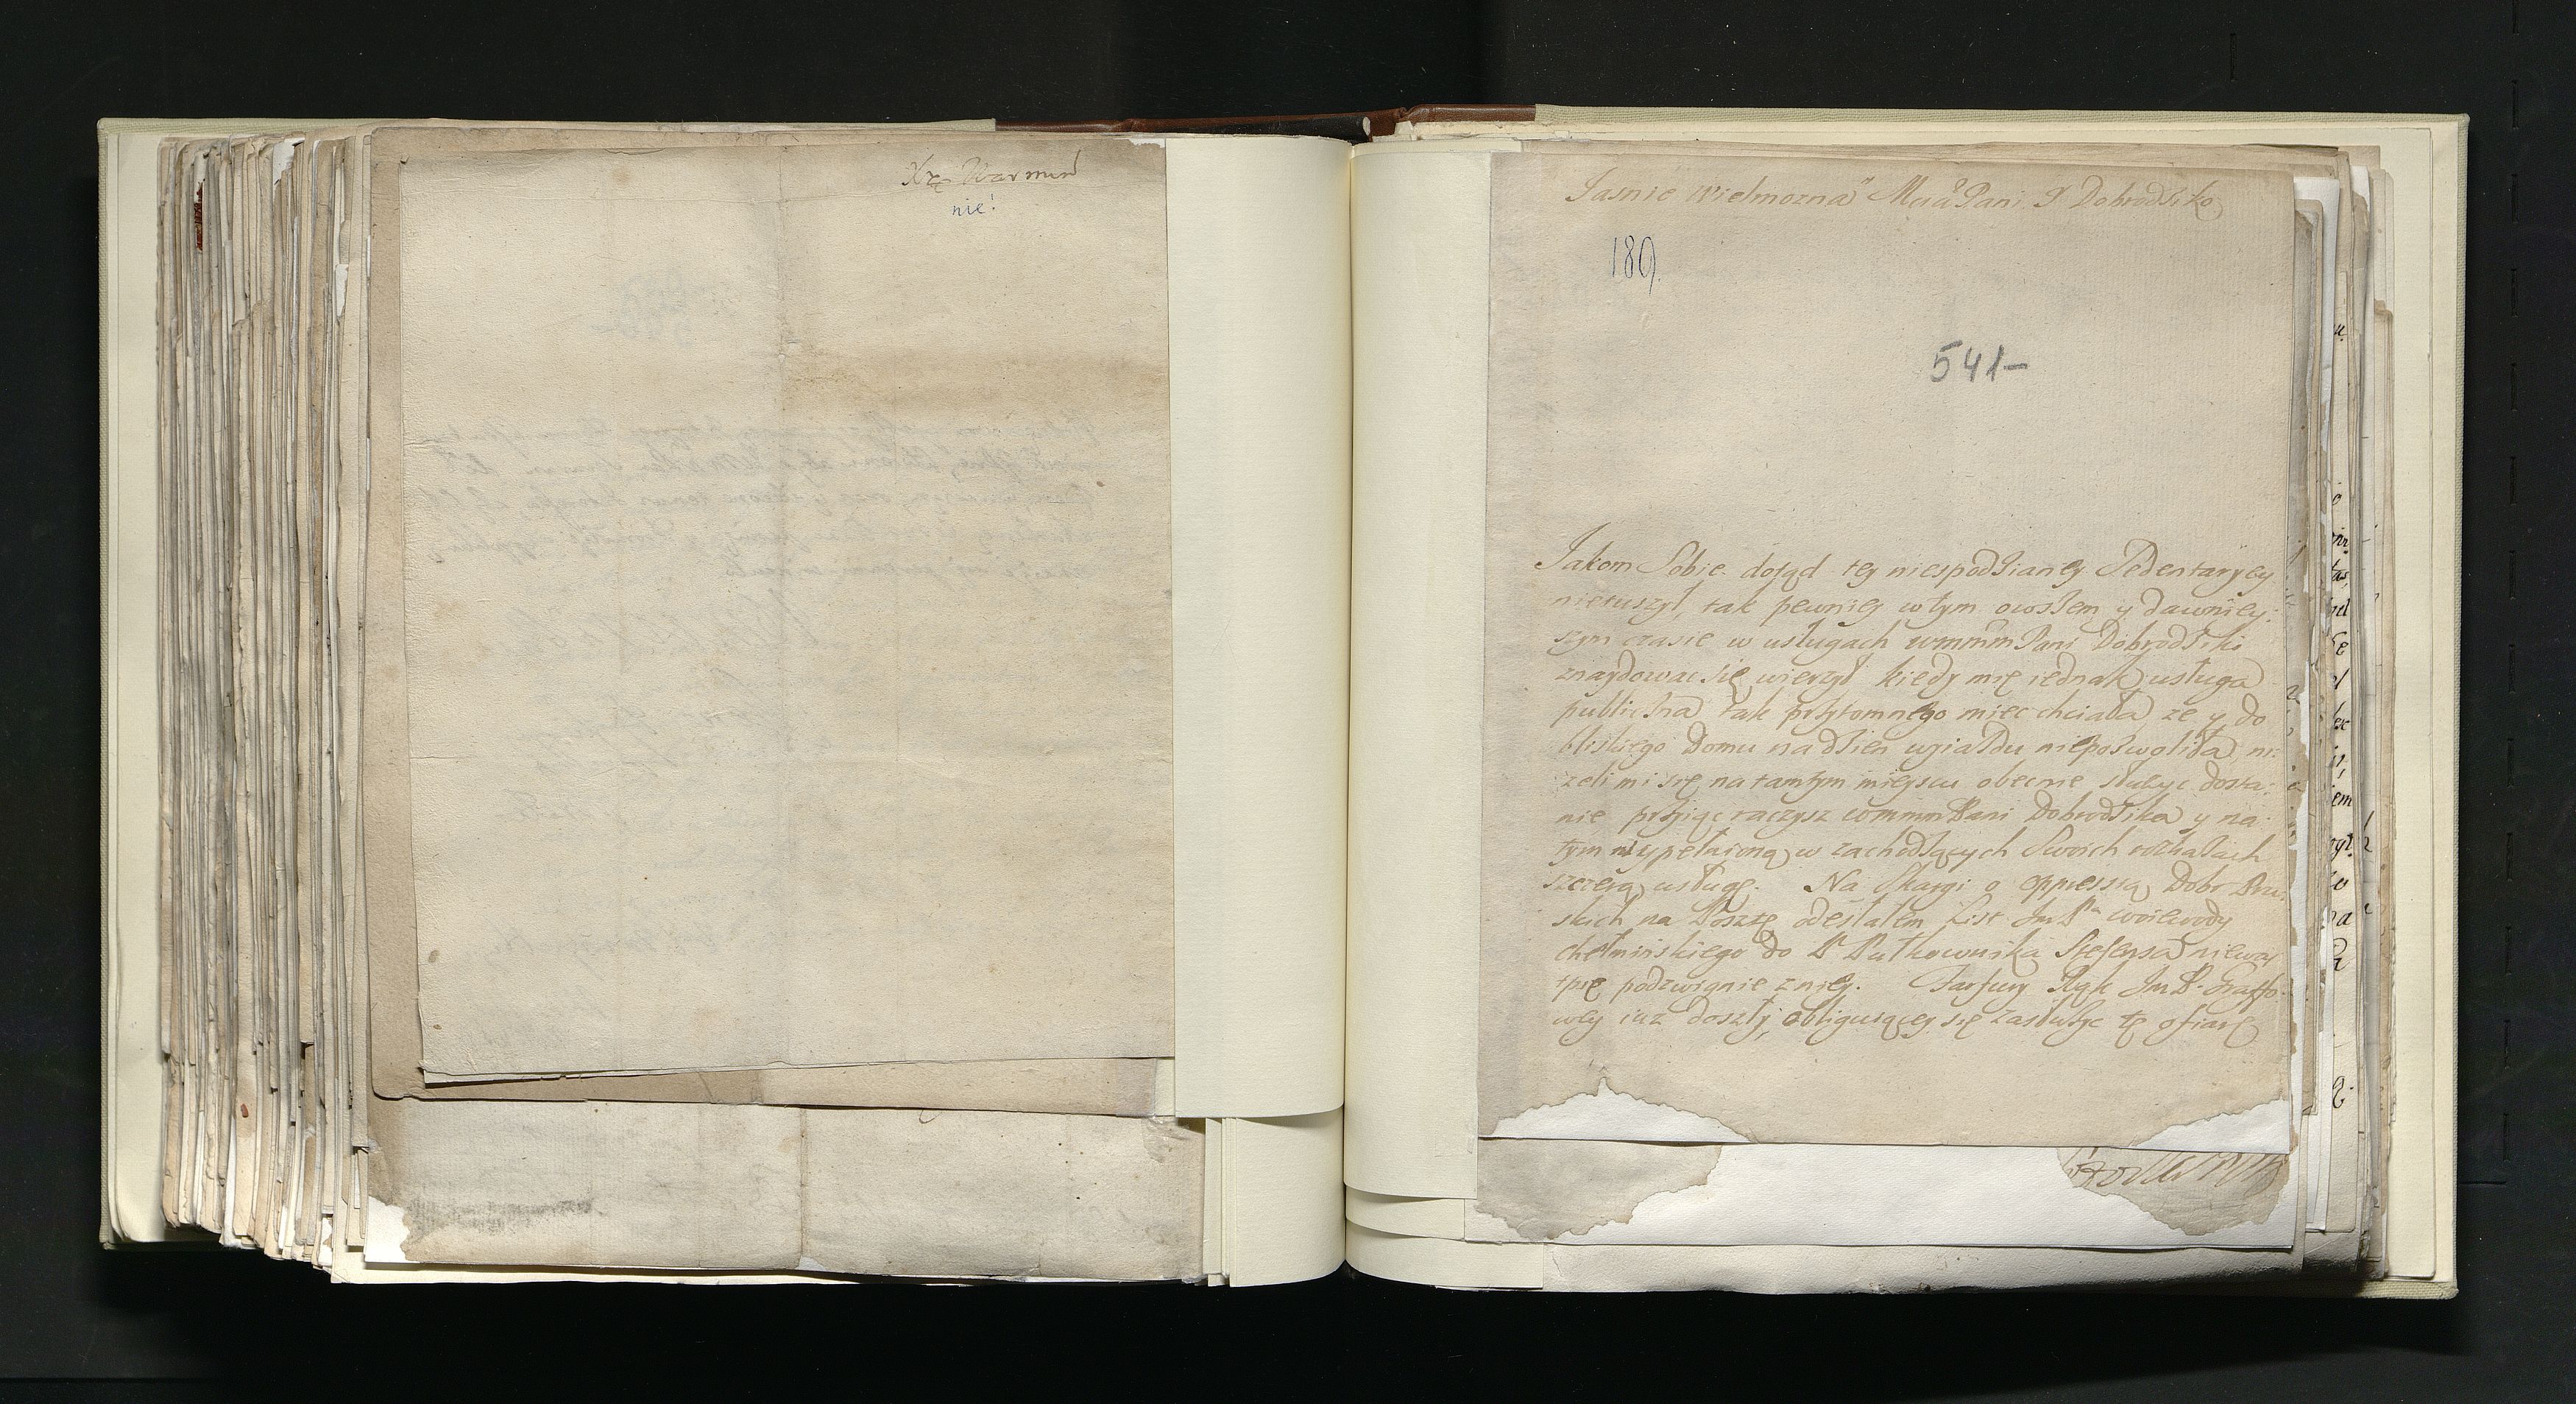 Xże Warmiń
nie!
Jasnie Wielmozna Mcia Pani J Dobrodziko
189.
541-
Jakom Sobie dotąd tey niespodzianey Sedentaryey
nietuszył, tak pewniey wtym owszem y dawniey:
szym czasie w usługach wmmm Pani Dobrodziki
znaydowac się wierzył kiedy mię iednak usługa
publiczna tak przytomnego miec chciała, ze y do
bliskiego Domu na dzien wyiazdu niepozwoliła, ni:
zeli mi się na tamtym mieyscu obecnie służyc dosta:
nie przyiąc raczysz wmmm Pani Dobrodzika y na
tym wypełnioną w zachodzących Swoich rozkazach
szczerą usługę. Na Skargi o oppressią Dobr Pru:
skich na Posztę odesłałem List Jm Pa Woiewody
chełmińskiego do P Pułkownika Stefensa niewą
tpię podzwignie zniey. Farfury Rąk Jm P. Graffo
wey iuz doszły, obliguiącey się zasłużyc tę ofiarę